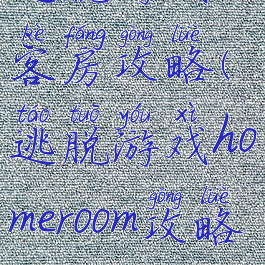 kè fáng gōng lüè
客房攻略(
táo tuō yóu xì
逃脱游戏ho
gōng lüè
meroom攻略